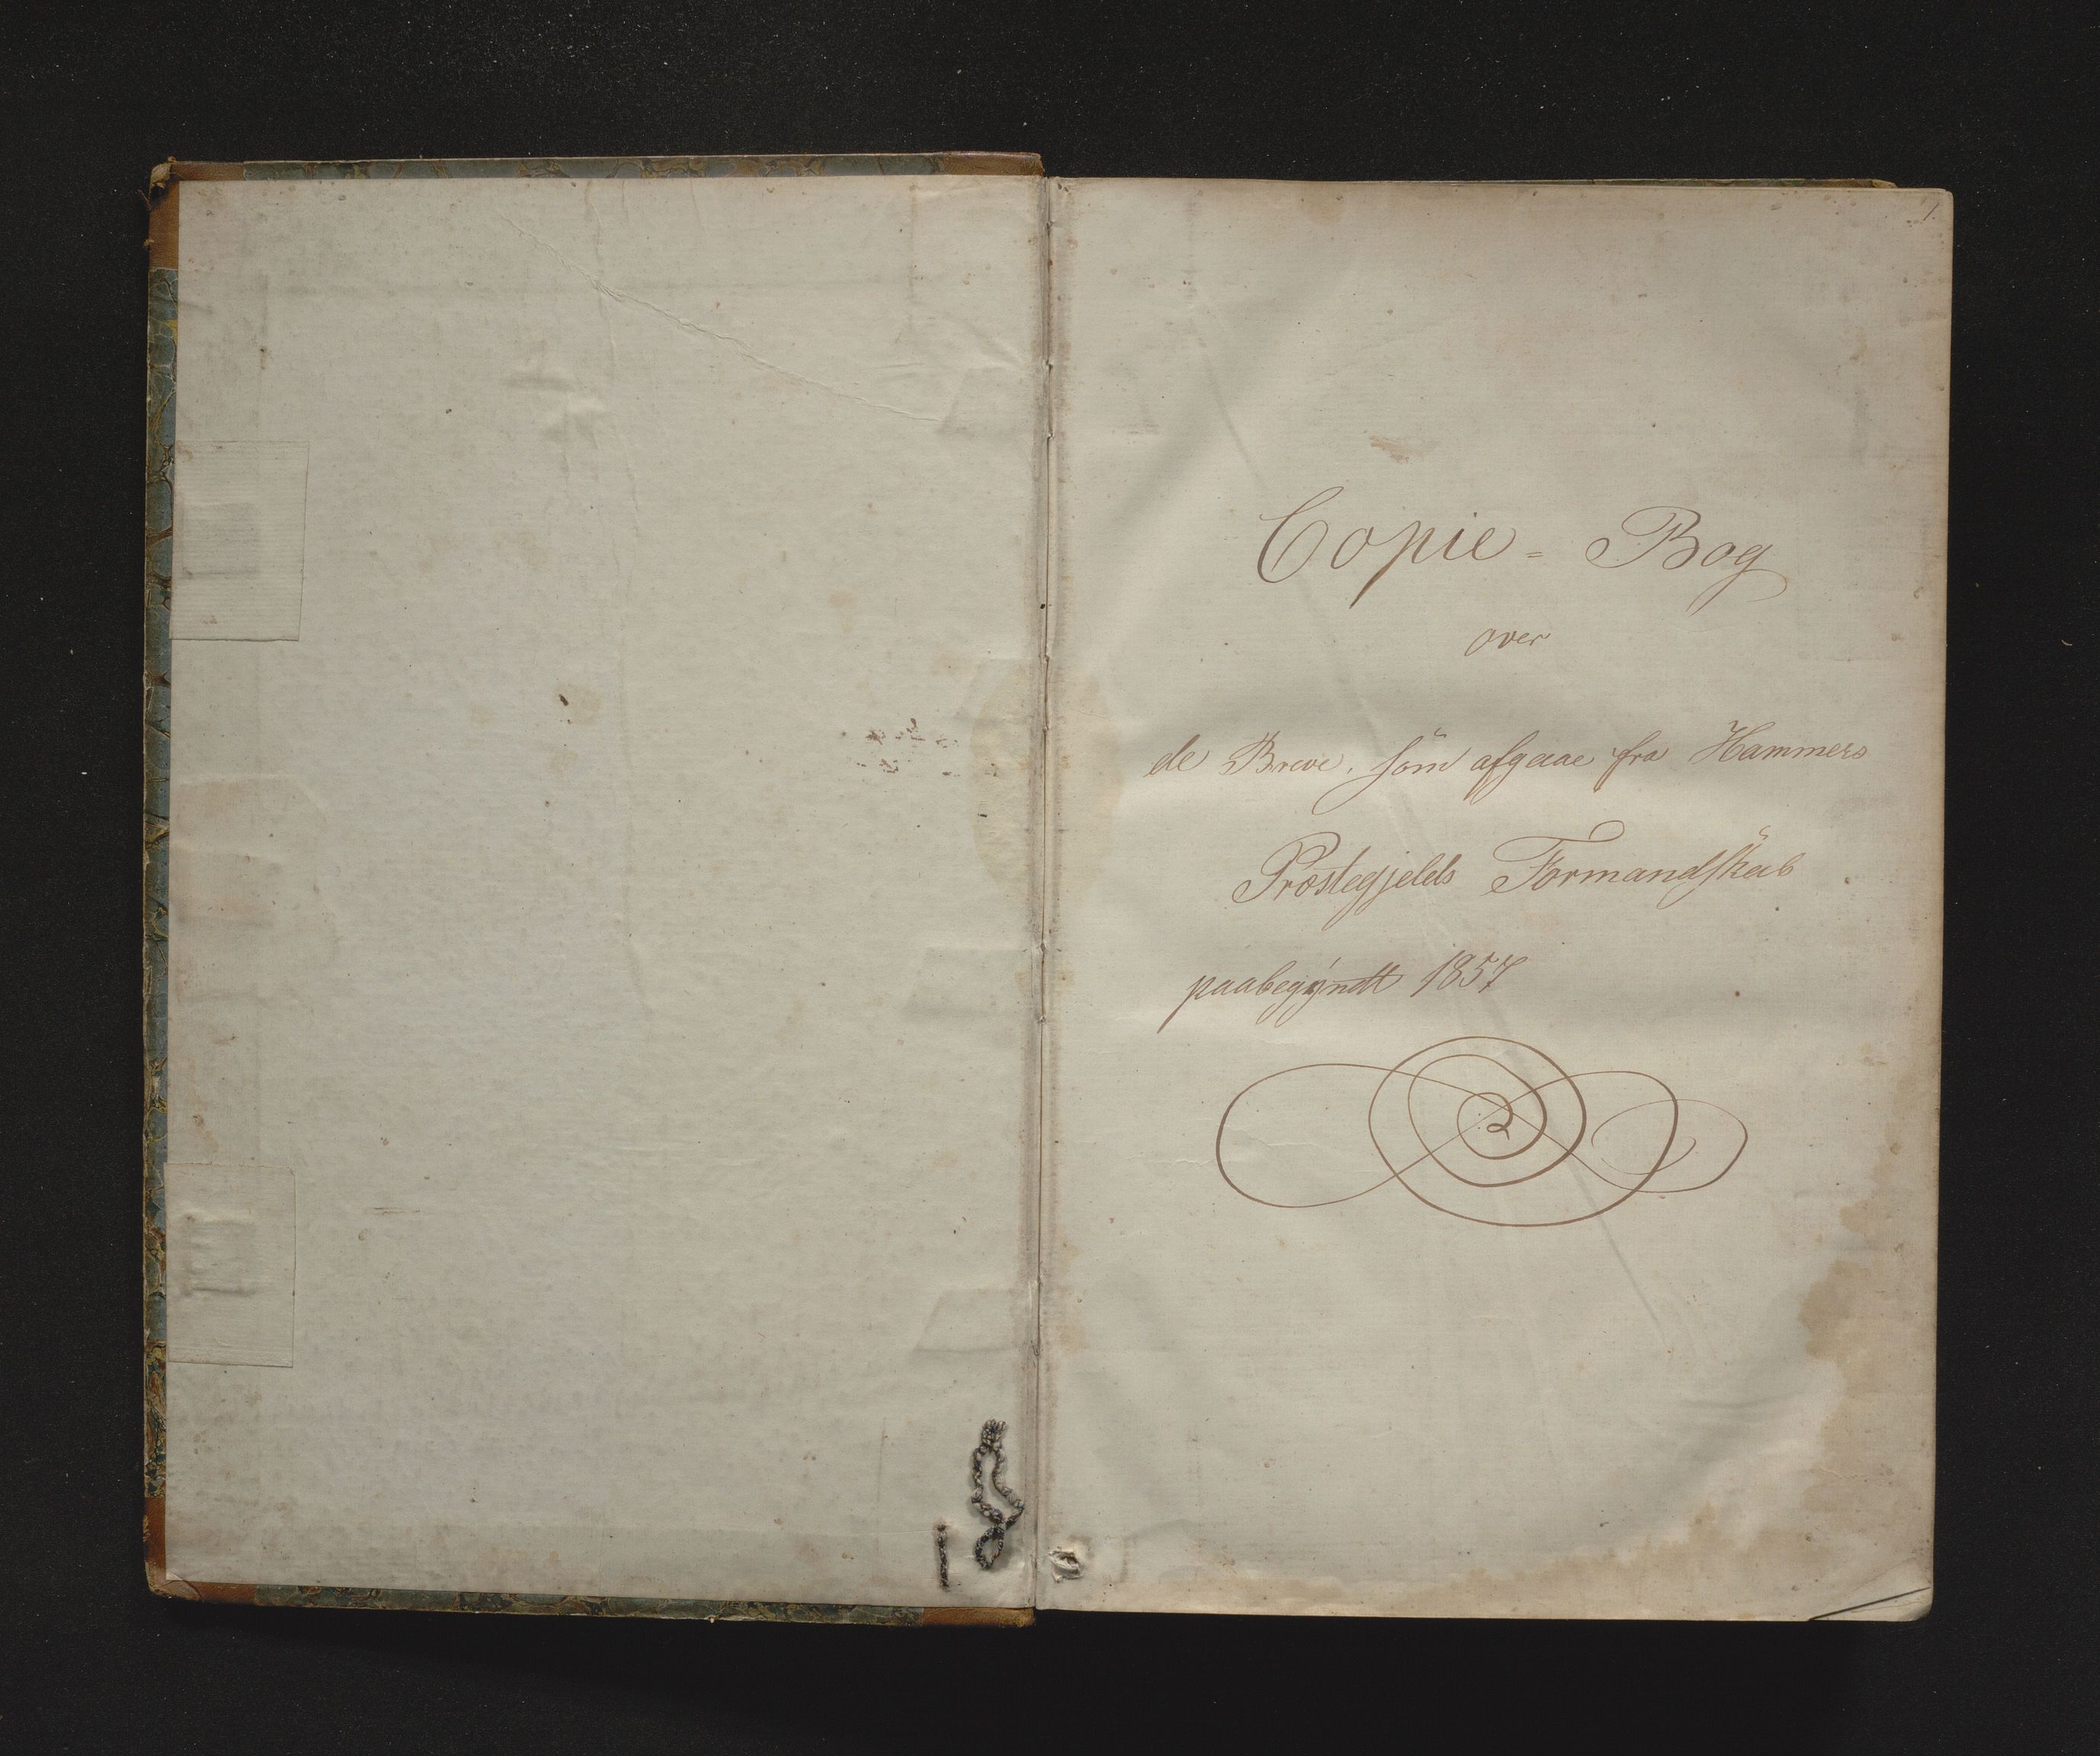 1.
Copie = Bog
over
de Breve, som afgaae fra Hammers
Præstegjelds Formandskab
paabegyndt 1857